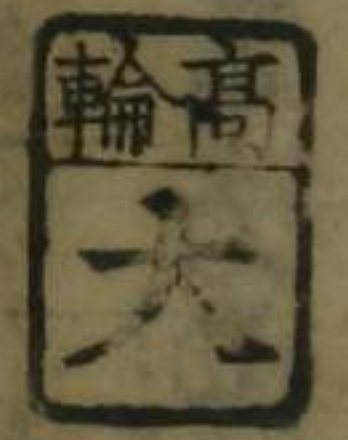 高輪
大